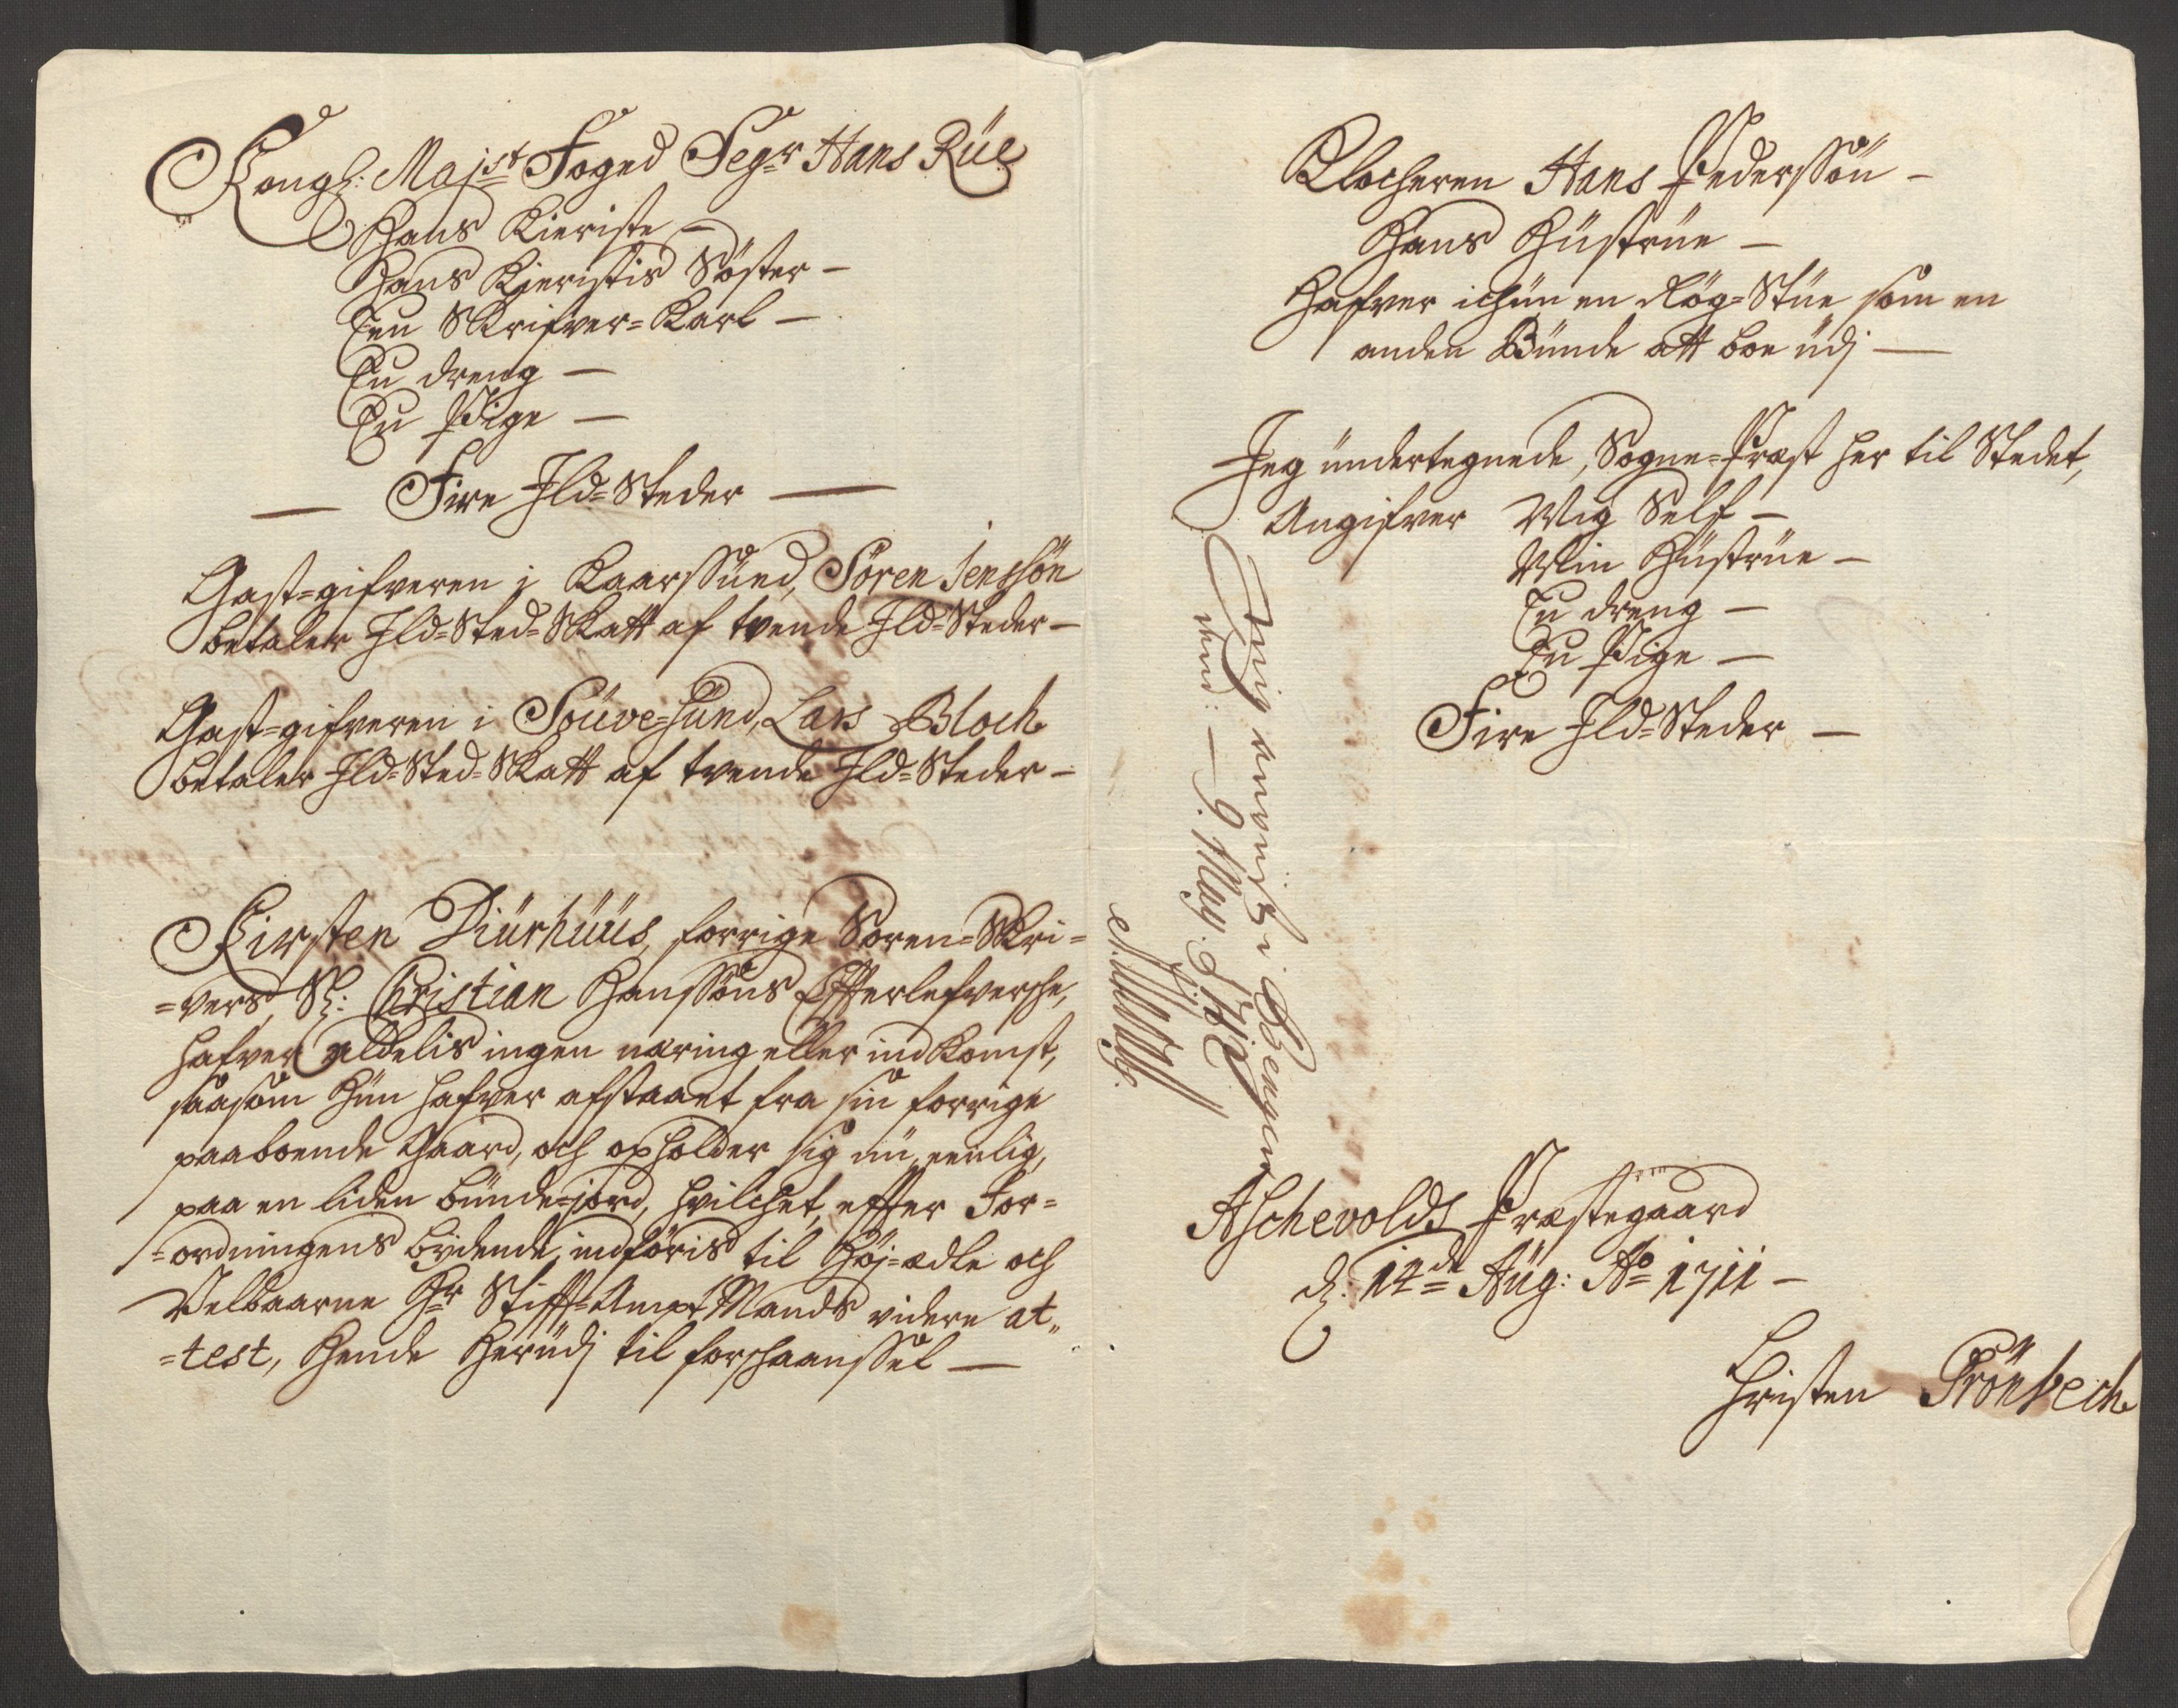 Kongl: Majst Foged Segr Hans Rüe
Hans Kieriste —
Hans Kieristis Söster —
Een Skrifver-Karl —
En dreng —
En Pige —
— Fire Ild-Steder —
Gast-gifveren i Kaarssund, Sören Jenssön
betaler Ild-Sted-Skatt af tvende Ild-Steder —
Gast-gifveren i Söüve-sünd, Lars Bloch
betaler Ild-Sted-Skatt af tvende Ild-Steder —
Kirsten Diürhüüs, forrige Soren-Skri-
-vers, Sl: Christian Hanssöns Efterlefversche,
hafver aldelis ingen næring eller indkomst,
saasom hun hafver afstaaet fra sin forrige
paaboende Gaard, och opholder sig nü, eenlig,
paa en liden bünde-jord, hvilchet, effter For-
-ordningens bÿdende, indföris til Höj-ædle och
Velbaarne Hr Stifft-Ampt Mands videre at-
-test, hende herüdj til forschaanssel —
Klocheren Hans Pederssön —
Hans Hüstrüe —
Hafver ichün en Rög-Stüe som en
anden Bünde att boe üdj —
Jeg ündertegnede, Sogne-Præst her til Stedet,
Angifver Mig Self —
Min Hüstrüe —
En dreng —
En Pige —
Fire Ild-Steder —
i Bergen
9. Maÿ. 1712
Aschevolds Præstegaard
d: 14de Aüg: Ao 1711 —
Christen Frönbech